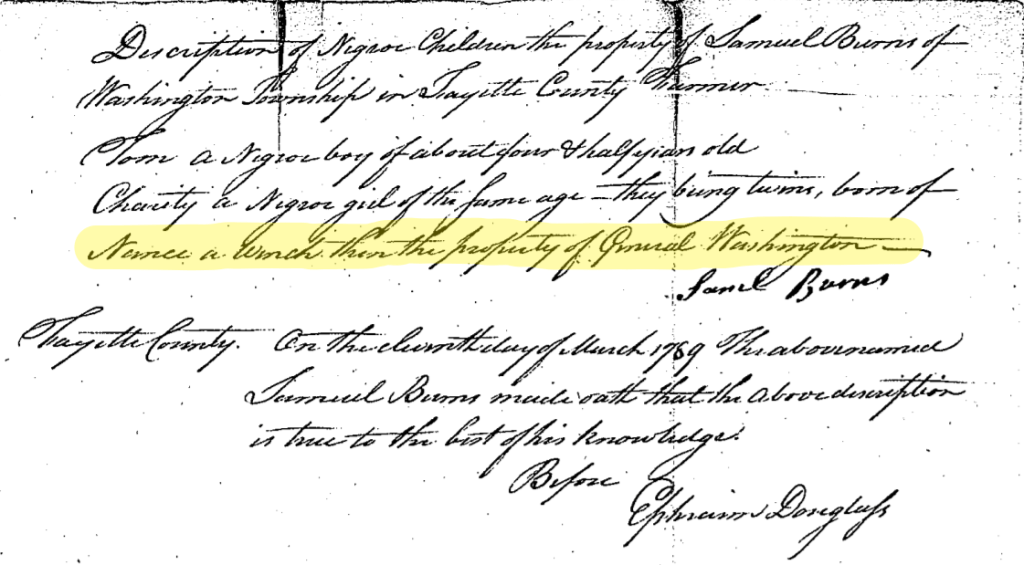 Discription of Negroe Children the property of Samuel Burns of
Washington Township in Fayette County Farmer
Tom a Negroe boy of about four & half years old
Charity a Negroe girl of the same age – they being twins, born of
Nance a Wench then the property of General Washington —
Saml Burns
Fayette County. On the eleventh day of March 1789 The abovenamed
Samuel Burns made oath that the above description
is true to the best of his knowledge.
Before
Ephraim Douglass